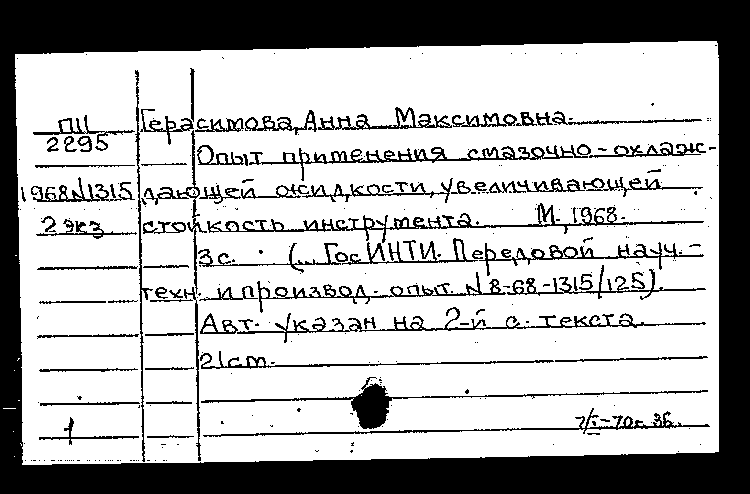 П11 Герасимова, Анна Максимовна.
2295
Опыт применения смазочно-охлаж-
1968 N1315 дающей жидкости, увеличивающей
2 экз. стойкость инструмента. М., 1968.
3 с. (... ГосИНТИ. Передовой науч.-
техн. и производ. опыт. N 8-68-1315/125).
Авт. указан на 2-й с. текста.
21 cm.
1